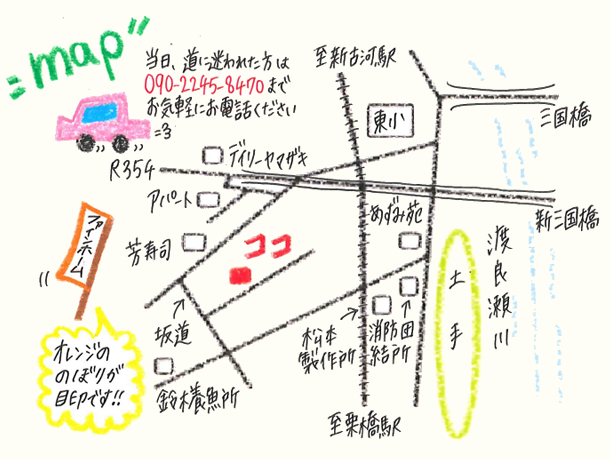 "map"
当日、道に迷われた方は
090-2245-8470まで
お気軽にお電話ください
至新古河駅
東小
三国橋
デイリーヤマザキ
R354
アパート
あずみ苑
新三国橋
ファインホーム
芳寿司
ココ
渡良瀬川
土手
坂道
松本
製作所
消防団
結所
オレンジの
のぼりが
目印です!!
鈴木養魚所
至栗橋駅